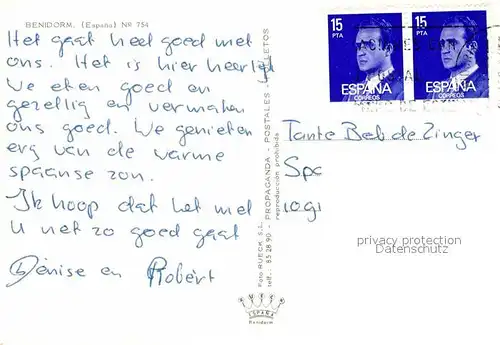 BENIDORM. (España) Nº 754
Het gaat heel goed met
ons. Het is hier heerlijk
We eten goed en
gezellig en vermaken
ons goed. We genieten
erg van de warme
spaanse zon.
Ik hoop dat het met
u net zo goed gaat
Dénise en Robèrt
Foto RUECK S.L. - PROPAGANDA - POSTALES -
Telf.: 85 28 90 - reproducción prohibida
ESPAÑA
Benidorm
15
PTA
ESPAÑA
CORREOS
15
PTA
ESPAÑA
CORREOS
Tante Bab de Zinger
Spa
privacy protection
Datenschutz